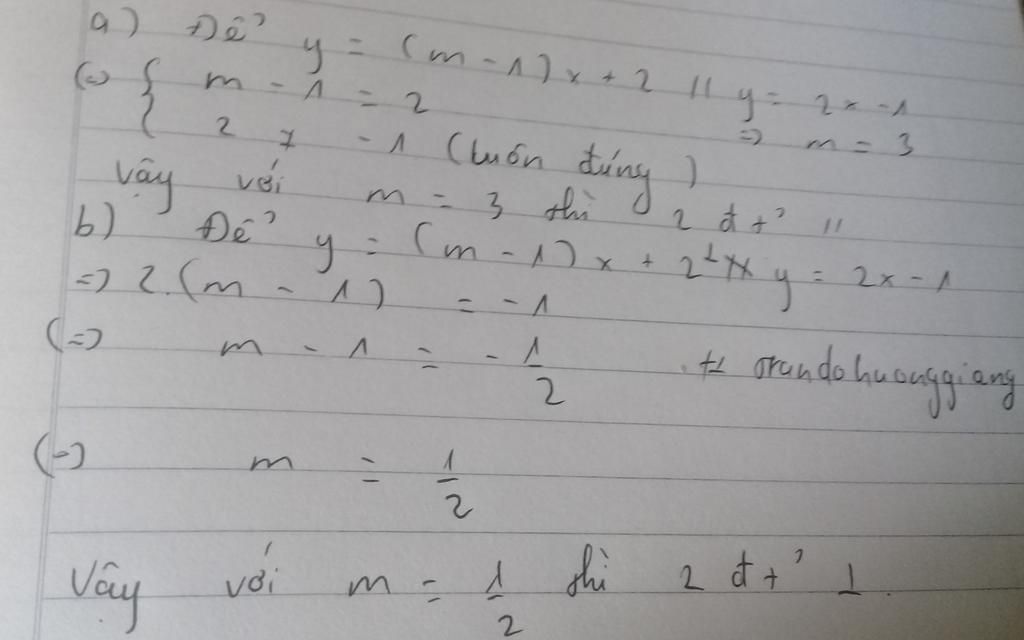 a) Để y = (m - 1)x + 2 // y = 2x - 1
(=) { m - 1 = 2 => m = 3
2 ≠ -1 (luôn đúng)
Vậy với m = 3 thì 2 đt' //
b) Để y = (m - 1)x + 2 ⊥ y = 2x - 1
=) 2.(m - 1) = -1
(=) m - 1 = -1/2
trandohuonggiang
(=) m = 1/2
Vậy với m = 1/2 thì 2 đt' ⊥.